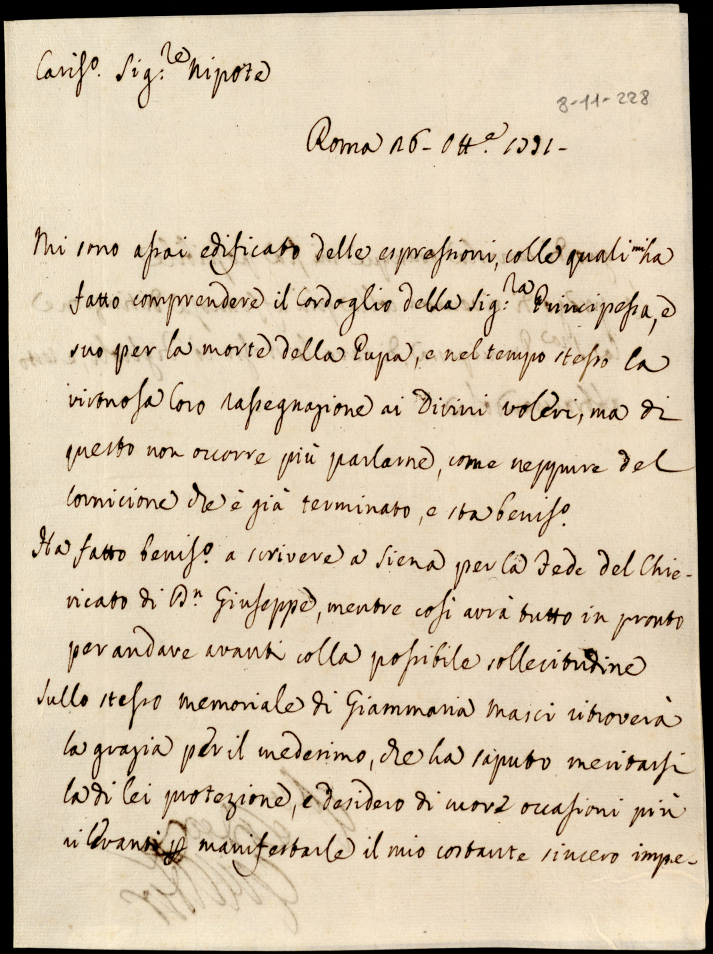 Cariſs.o Sig:re Nipote
8-11-228
Roma 26- Ott.e 1791-
Mi sono aſsai edificato delle espreſsioni, colle quali mi ha
fatto comprendere il Cordoglio della Sig:ra Principeſsa, e
suo per la morte della Pupa, e nel tempo steſso la
virtuosa loro raſsegnazione ai Divini voleri, ma di
questo non occorre più parlarne, come neppure del
Cornicione che è già terminato, e sta beniſs.o
Ha fatto beniſs.o a scrivere a Siena per la Fede del Chie-
ricato di Dn Giuseppe, mentre così avrà tutto in pronto
per andare avanti colla poſsibile sollecitudine
Sullo steſso memoriale di Giammaria Masci ritroverà
la grazia per il medesimo, che ha saputo meritarsi
la di lei protezione, e desidero di cuore occasioni più
rilevanti manifestarle il mio costante sincero impe-